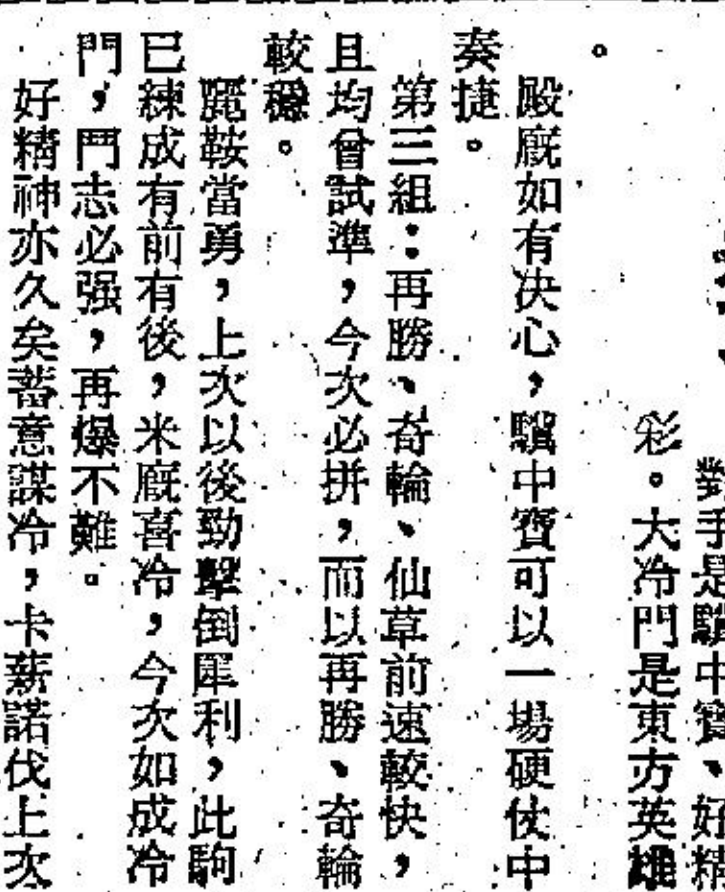 對手是驥中寶、好精
彩。大冷門是東方英雄
。
殿廐如有决心，驥中寶可以一場硬仗中
奏捷。
第三組：再勝、奇輪、仙草前速較快，
且均曾試準，今次必拼，而以再勝、奇輪
較穩。
麗鞍當勇，上次以後勁擊倒犀利，此駒
已練成有前有後，米廐喜冷，今次如成冷
門，鬥志必强，再爆不難。
好精神亦久矣蓄意謀冷，卡薪諾伐上次